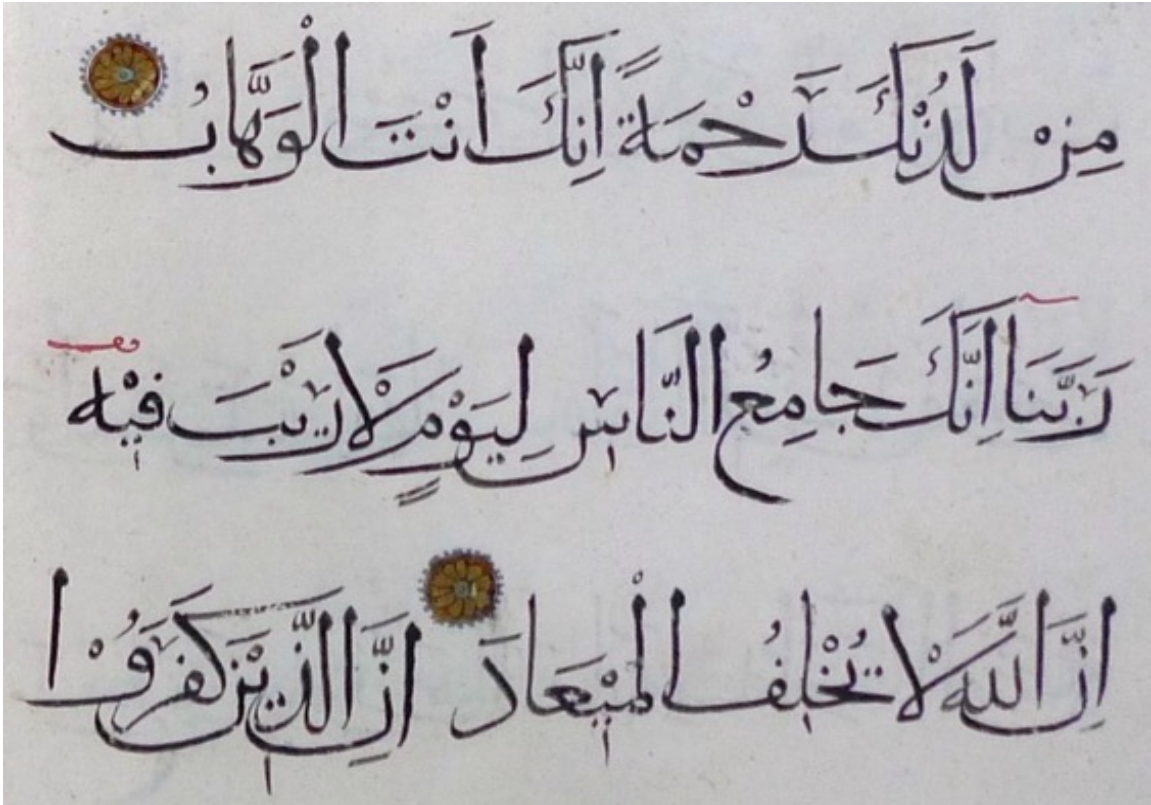 مِنْ لَدُنْكَ رَحْمَةً اِنَّكَ اَنْتَ الْوَهَّابُ
رَبَّنَا اِنَّكَ جَامِعُ النَّاسِ لِيَوْمٍ لَا رَيْبَ فِيْهِ
اِنَّ اللّٰهَ لَا يُخْلِفُ الْمِيْعَادَ اِنَّ الَّذِيْنَ كَفَرُوْا